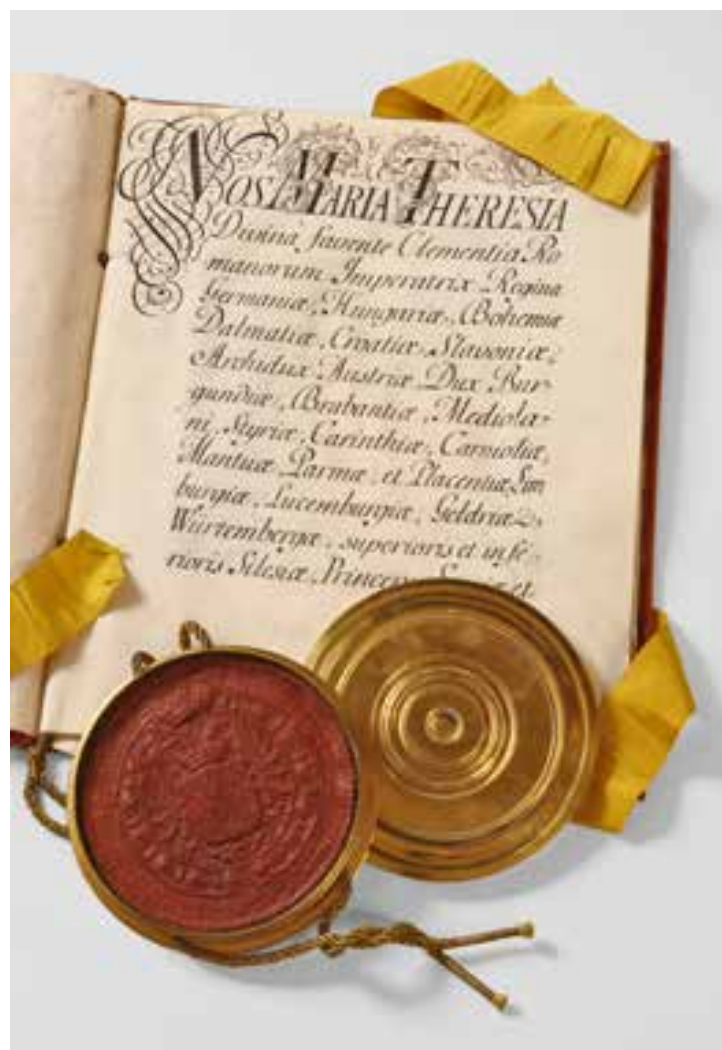 NOS MARIA THERESIA
Divina favente Clementia Ro
manorum Imperatrix Regina
Germaniæ, Hungariæ, Bohemiæ
Dalmatiæ, Croatiæ, Slavoniæ,
Archidux Austriæ Dux Bur-
gundiæ, Brabantiæ, Mediola-
ni, Styriæ, Carinthiæ, Carnioliæ,
Mantuæ Parmæ, et Placentiæ, Lim
burgiæ, Lucemburgiæ, Geldriæ,
Würtembergæ, superioris et infe-
rioris Silesiæ, Princeps et